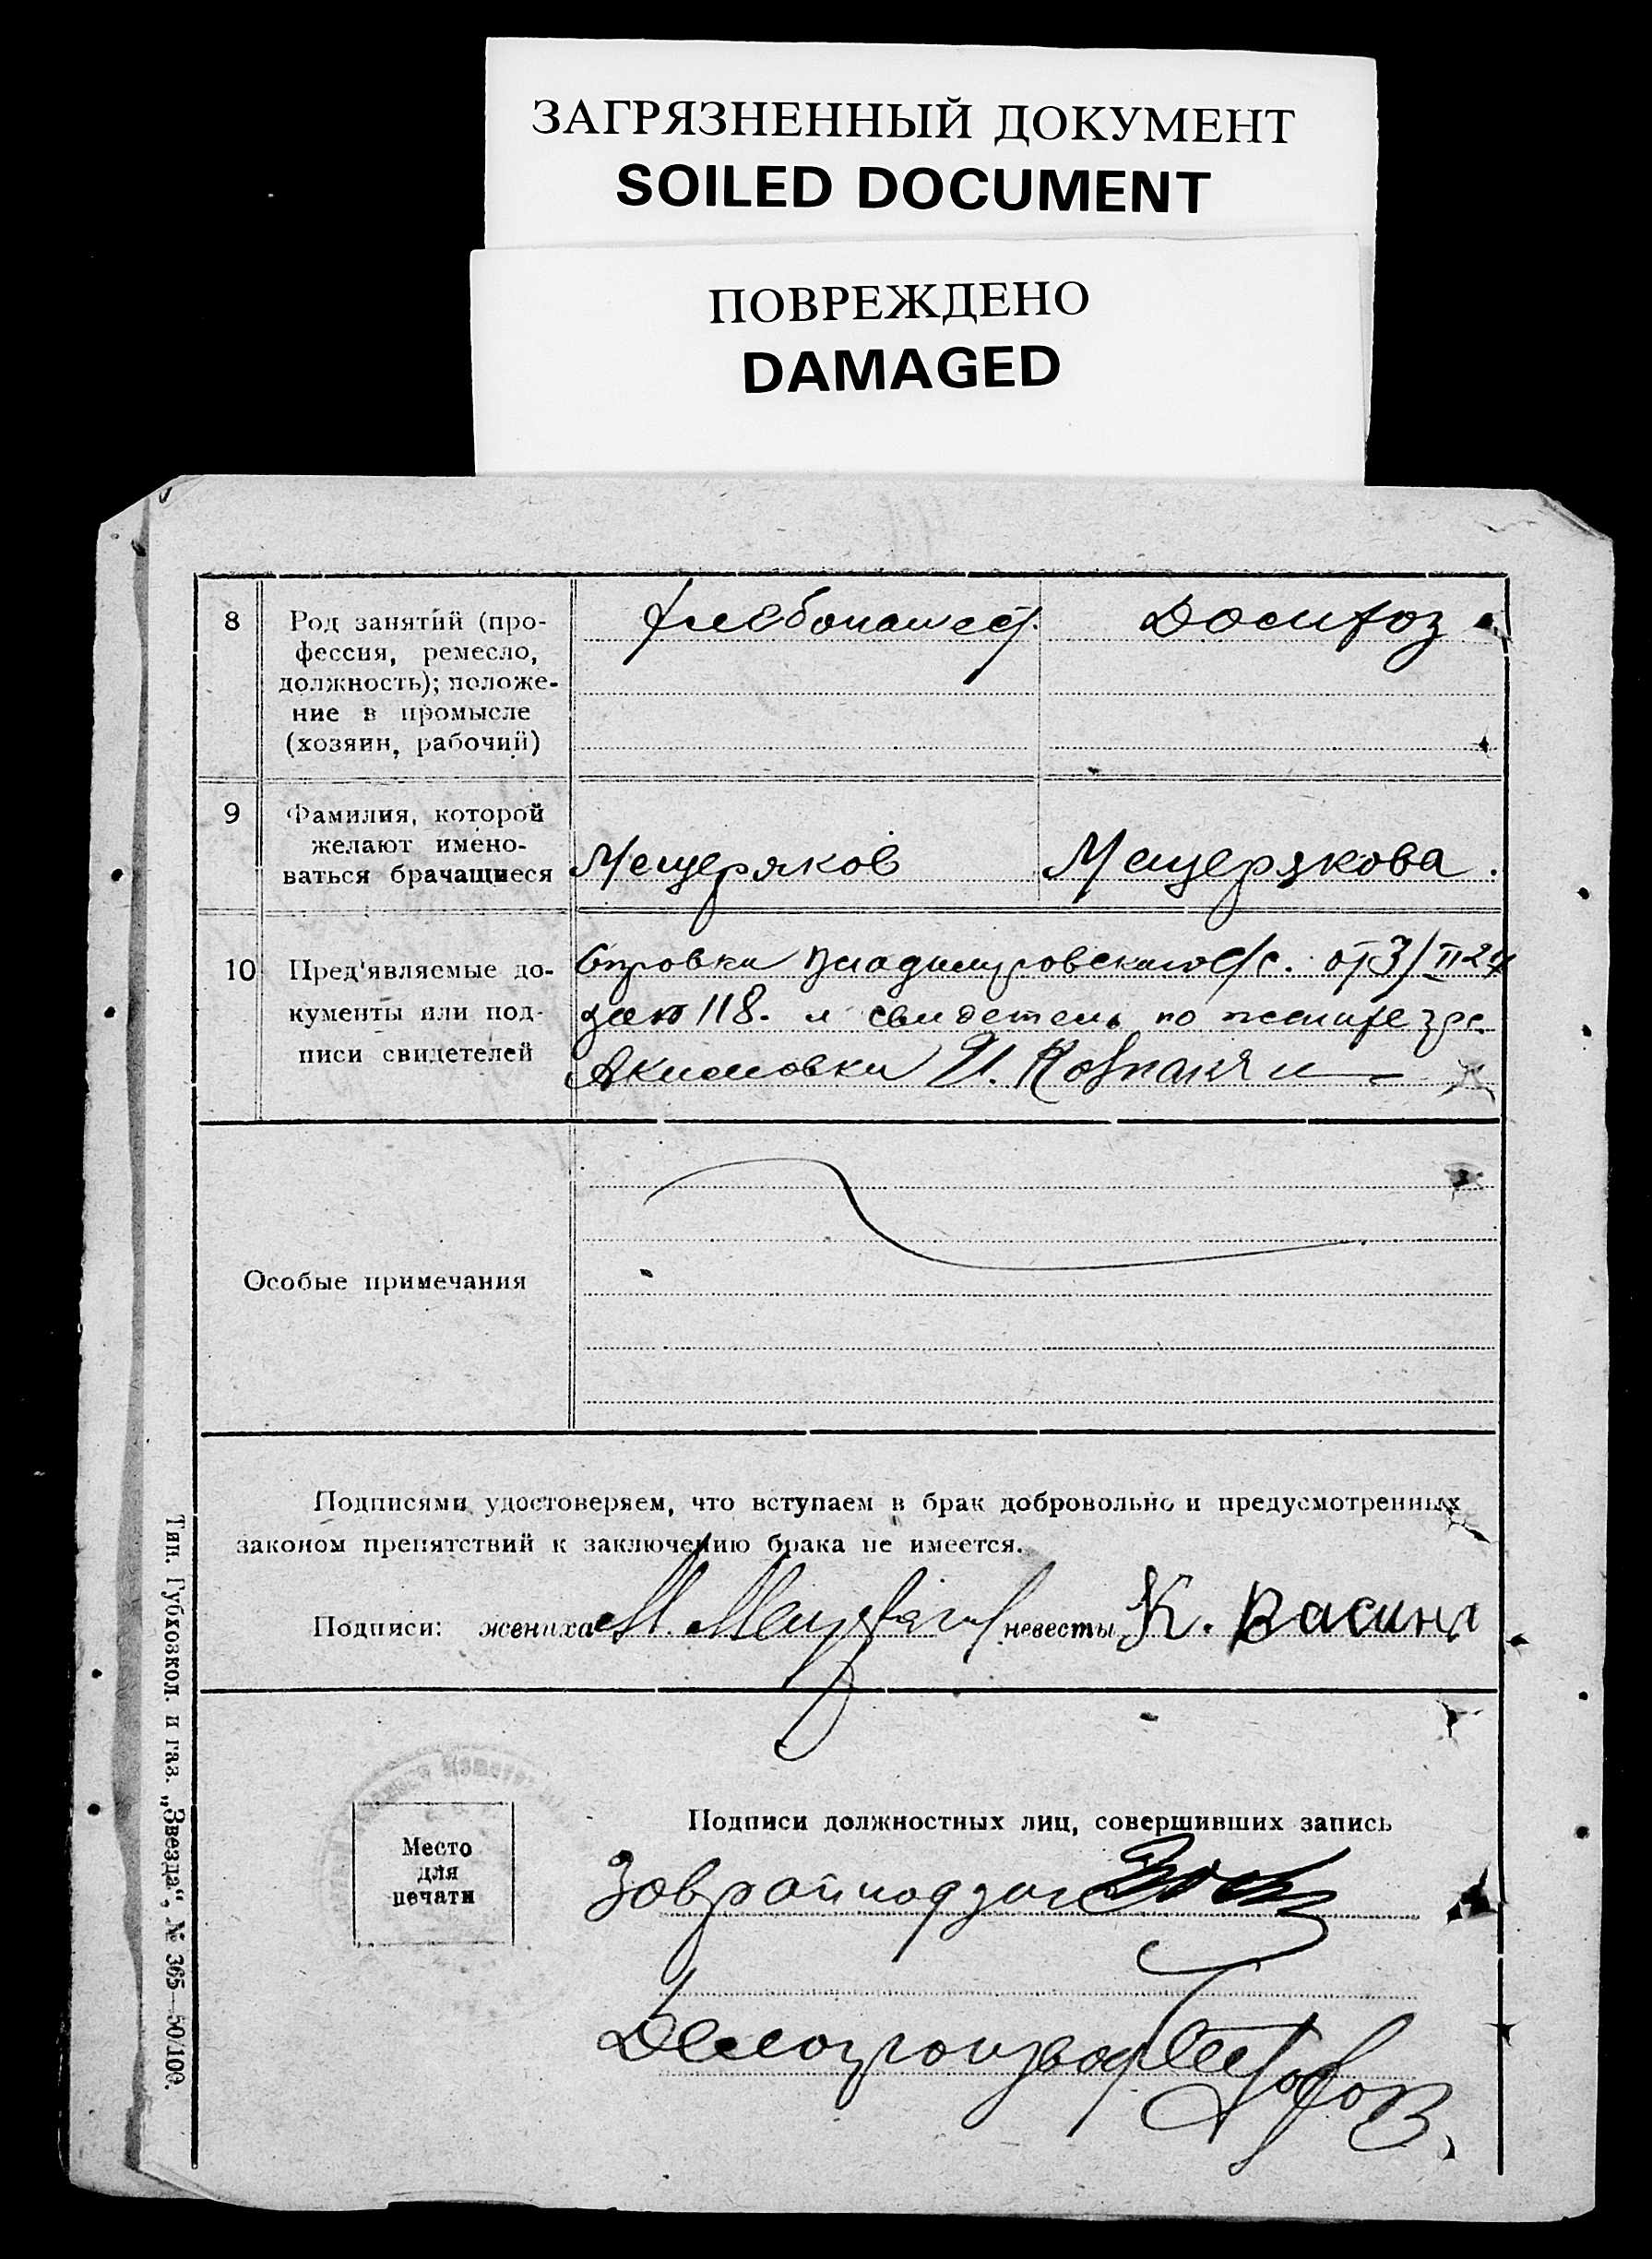 ЗАГРЯЗНЕННЫЙ ДОКУМЕНТ
SOILED DOCUMENT
ПОВРЕЖДЕНО
DAMAGED
8
Род занятий (про-
фессия, ремесло,
должность); положе-
ние в промысле
(хозяин, рабочий)
хлебопашест.
Домхоз
9
Фамилия, которой
желают имено-
ваться брачащиеся
Мещеряков
Мещерякова.
10
Пред'являемые до-
кументы или под-
писи свидетелей
Справки Владимировского с/с. от 3/II 24
за № 118. и свидетель по женитье гр. с.
Акимовки И.
Особые примечания
Подписями удостоверяем, что вступаем в брак добровольно и предусмотренных
законом препятствий к заключению брака не имеется.
Подписи: жениха М. Мещеряков невесты К. Васина
Место
для
печати
Подписи должностных лиц, совершивших запись
Заврайподзаг
Делопроизвод
Тип. Губхозкол. и газ. „Звезда“, № 365—50/100.